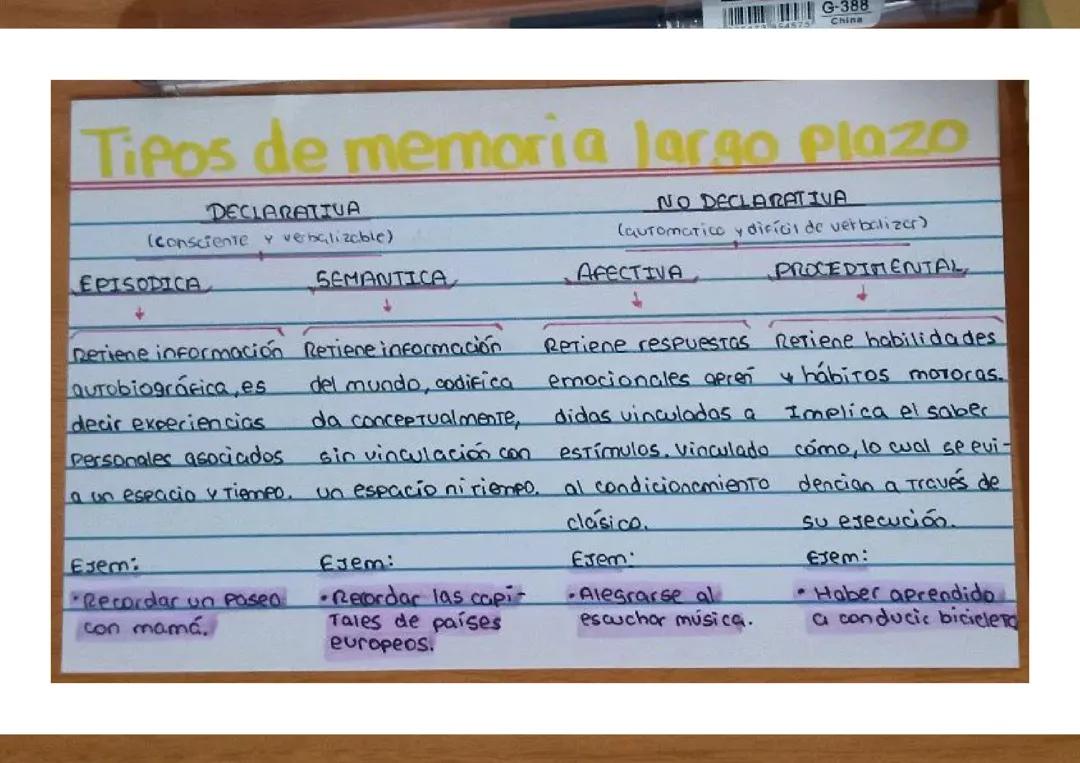 G-388
China
Tipos de memoria largo plazo
DECLARATIVA
(consciente y verbalizable)
NO DECLARATIVA
(automatico y dificil de verbalizar)
EPISODICA
Retiene información
autobiográfica, es
decir experiencias
personales asociados
a un espacio y tiempo.
Ejem:
• Recordar un paseo
con mamá.
SEMANTICA
Retiene información
del mundo, codifica
da conceptualmente,
sin vinculación con
un espacio ni tiempo.
Ejem:
• Recordar las capi-
tales de países
europeos.
AFECTIVA
Retiene respuestas
emocionales apren
didas vinculadas a
estímulos. Vinculado
al condicionamiento
clásico.
Ejem:
• Alegrarse al
escuchar música.
PROCEDIMENTAL
Retiene habilidades
y hábitos motoras.
Implica el saber
cómo, lo cual se evi-
dencian a través de
su ejecución.
Ejem:
• Haber aprendido
a conducir bicicleta